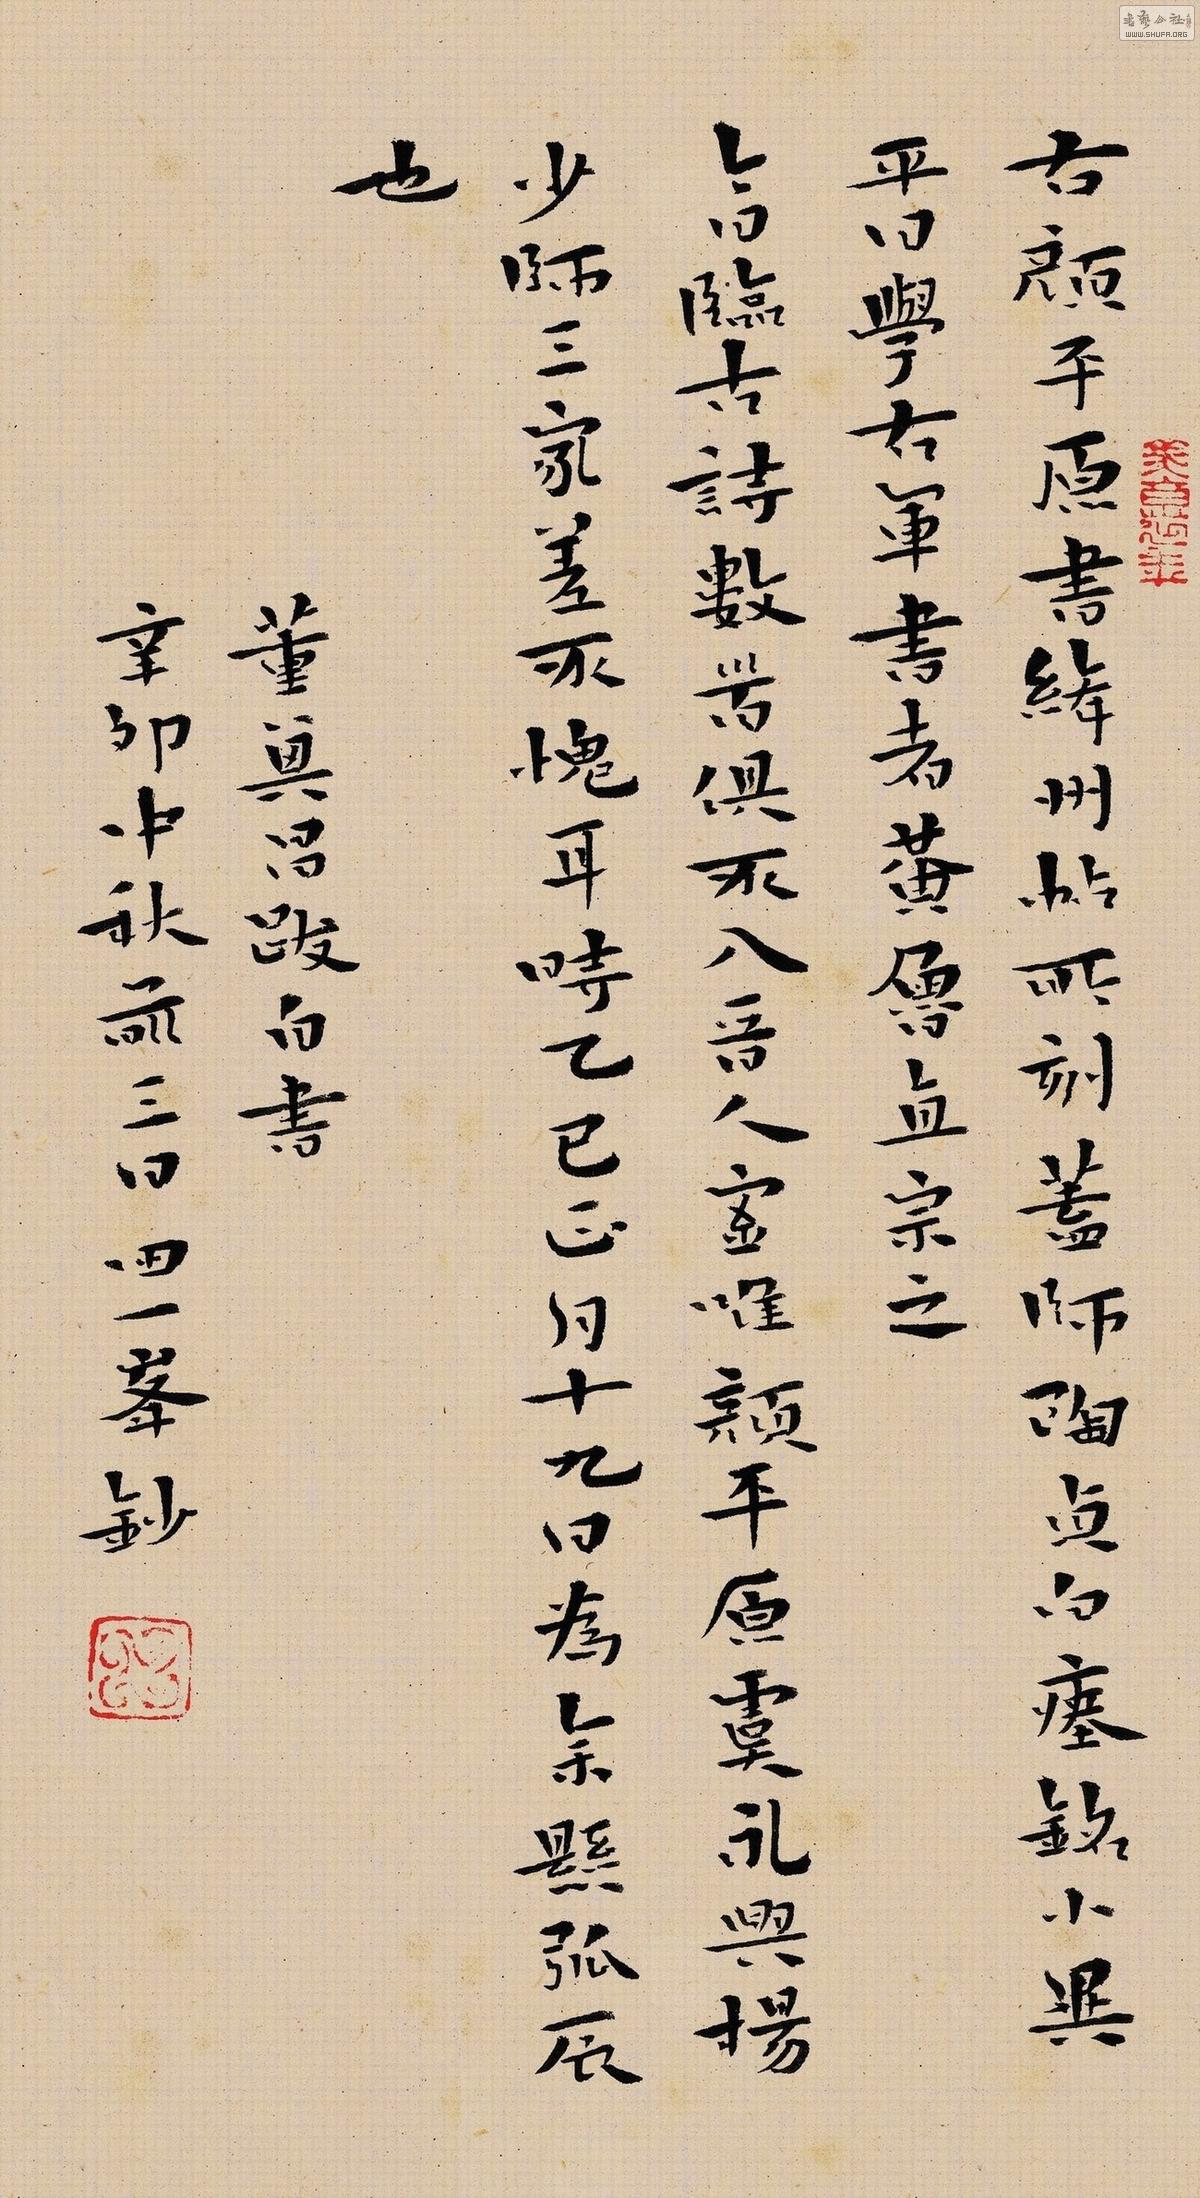 右顏平原書絳州帖所刻蓋師陶貞白瘞銘小異
平日學右軍書者黃魯直宗之
今日臨古詩數首俱不入晉人室唯顏平原虞永興楊
少師三家差不愧耳時乙巳正月十九日為余懸弧辰
也
董其昌跋自書
辛卯中秋前三日四一峯鈔
书艺公社
WWW.SHUFA.ORG